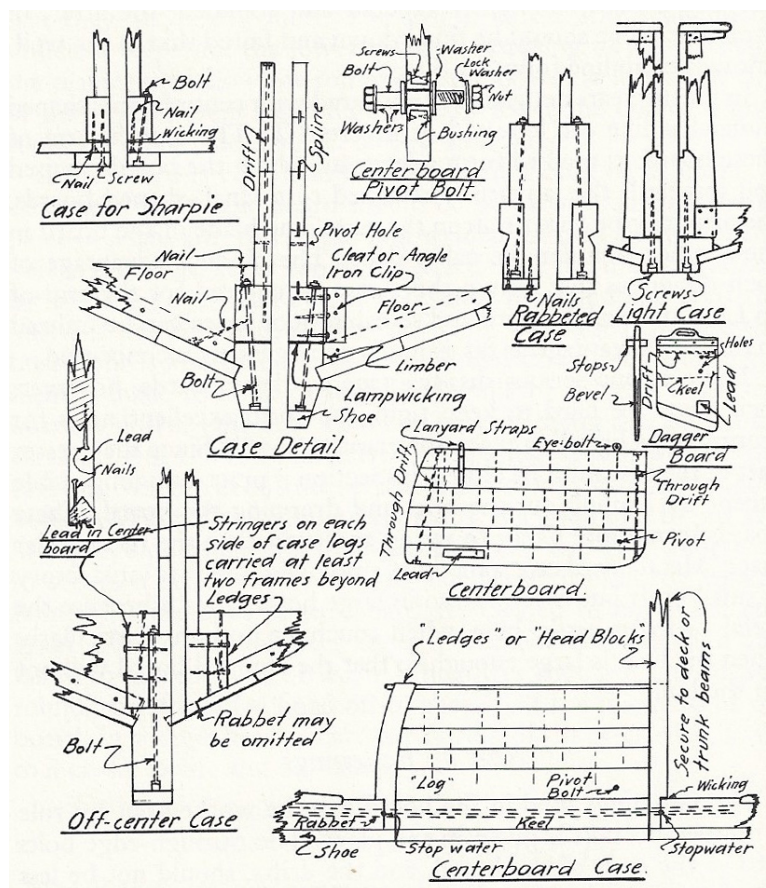 Bolt
Nail
Wicking
Nail
Screw
Case for Sharpie
Drift
Spline
Pivot Hole
Nail
Cleat or Angle
Iron Clip
Floor
Nail
Floor
Limber
Bolt
Lampwicking
Shoe
Case Detail
Screws
Washer
Bolt
Lock
Washer
Nut
Washers
Bushing
Centerboard
Pivot Bolt.
Nails
Rabbeted
Case
Screws
Light Case
Stops
Bevel
Drift
Holes
Keel
Lead
Dagger
Board
Lead
Nails
Lead in Center
board
Lanyard Straps
Eye-bolt
Through Drift
Through
Drift
Pivot
Lead
Centerboard.
Stringers on each
side of case logs
carried at least
two frames beyond
Ledges
Rabbet may
be omitted
Bolt
Off-center Case
"Ledges" or "Head Blocks"
Secure to deck or
trunk beams
"Log"
Pivot
Bolt
Wicking
Rabbet
Keel
Shoe
Stop water
Stopwater
Centerboard Case.